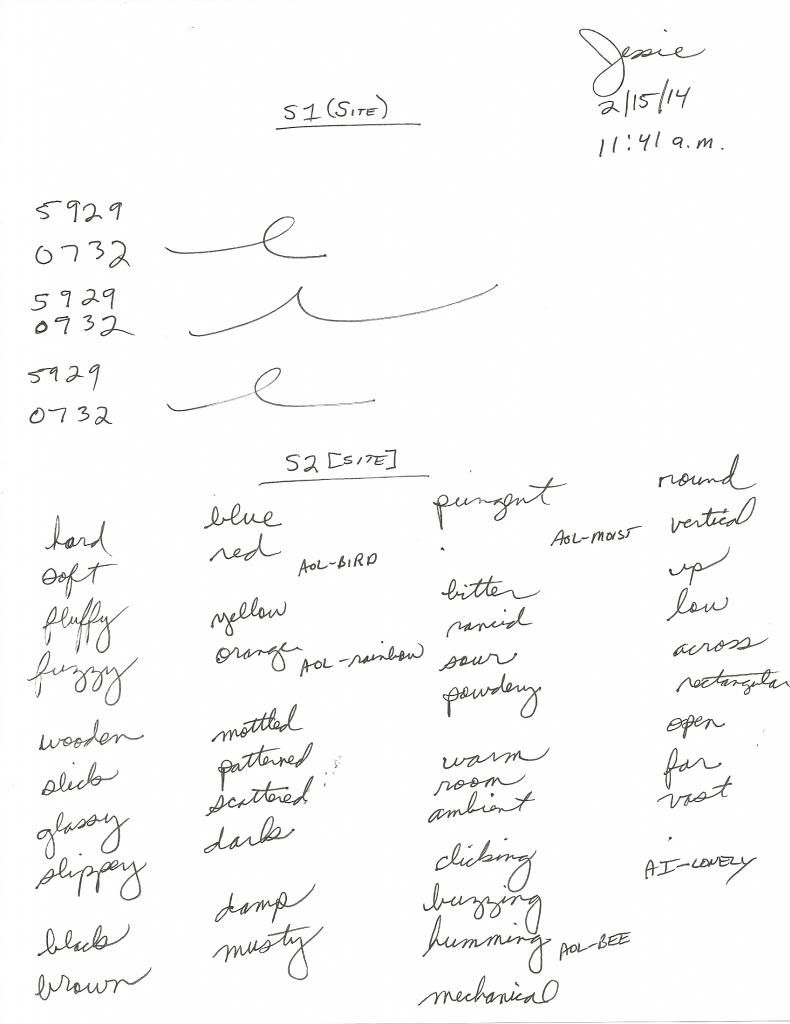 Jessie
2/15/14
11:41 a.m.
S1 (SITE)
5929
0732
5929
0932
5929
0732
S2 [SITE]
hard
soft
fluffy
fuzzy
wooden
slick
glassy
slippery
black
brown
blue
red
AOL-BIRD
yellow
orange
AOL-rainbow
mottled
patterned
scattered
dark
damp
musty
pungent
AOL-MOIST
bitter
rancid
sour
powdery
warm
room
ambient
clicking
buzzing
humming
AOL-BEE
mechanical
round
vertical
up
low
across
rectangular
open
far
vast
AI-LONELY